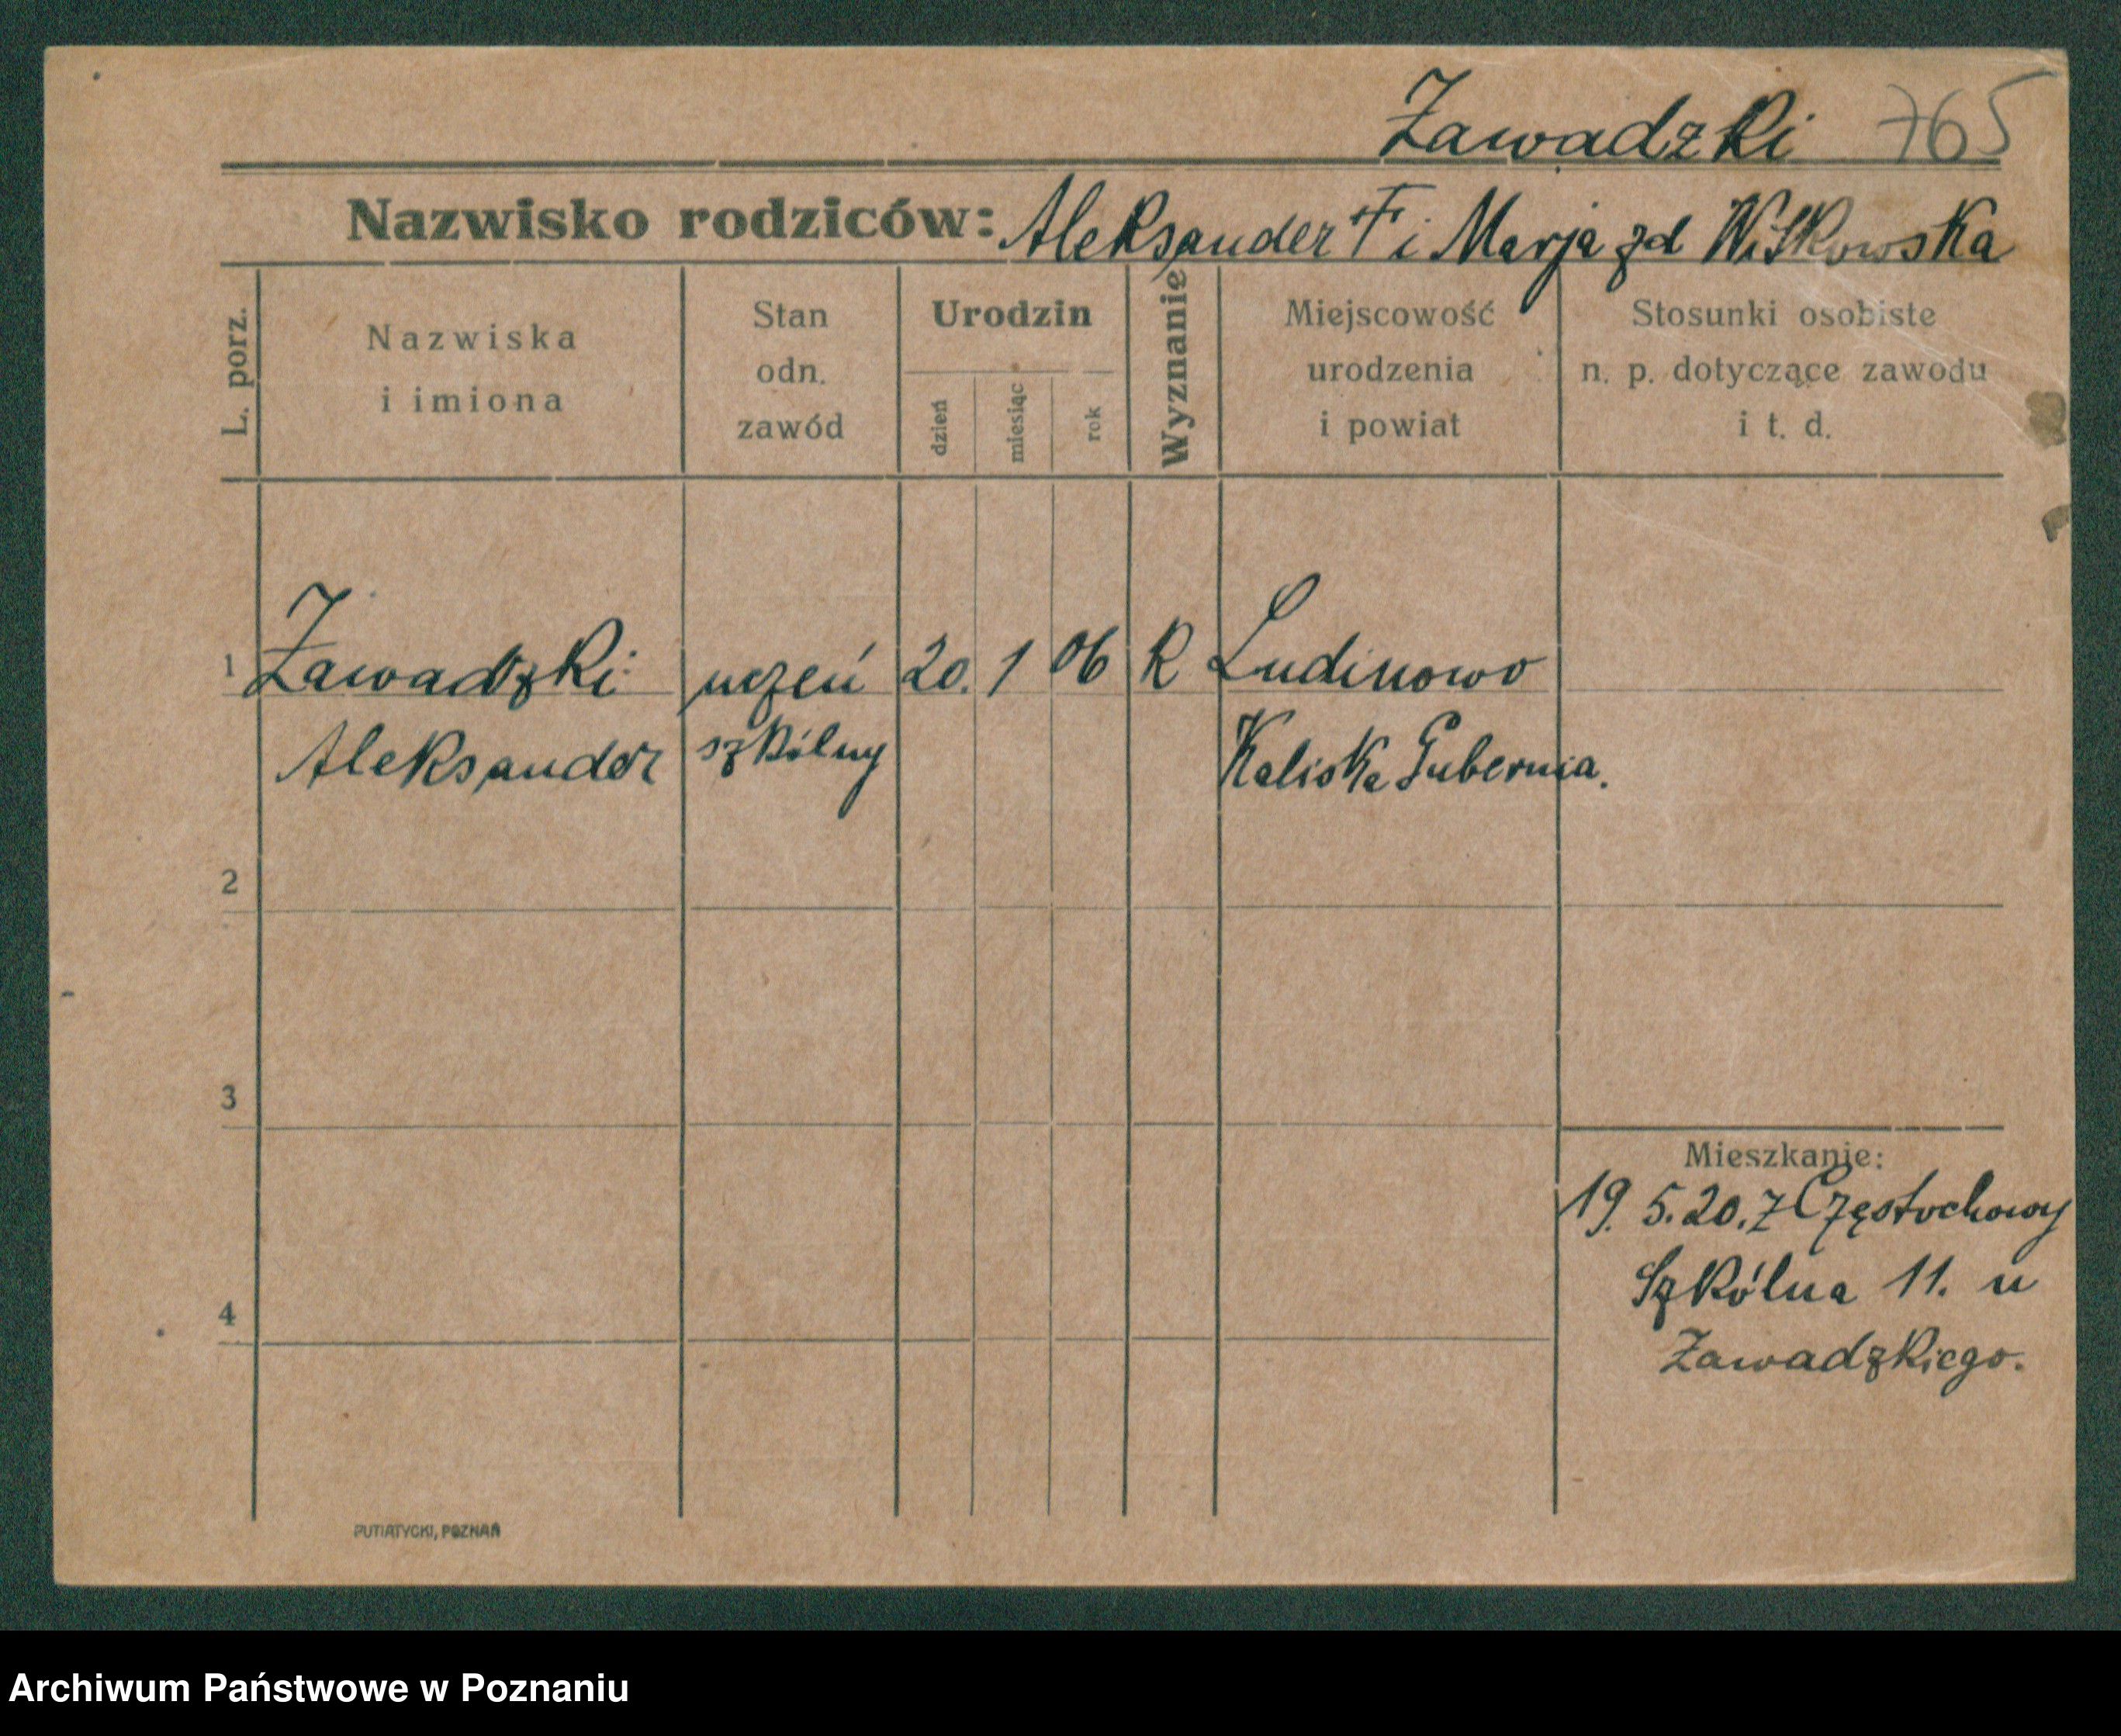 Zawadzki 765
Nazwisko rodziców: Aleksander † i Marja zd Witkowska
L. porz.
Nazwiska
i imiona
Stan
odn.
zawód
Urodzin
dzień
miesiąc
rok
Wyznanie
Miejscowość
urodzenia
i powiat
Stosunki osobiste
n. p. dotyczące zawodu
i t. d.
1 Zawadzki uczeń 20. 1 06 R Ludinowo
Aleksander szkólny Kaliska Gubernia.
2
3
Mieszkanie:
19. 5. 20. z Częstochowy
Szkólna 11. u
4
Zawadzkiego.
PUTIATYCKI, POZNAŃ
Archiwum Państwowe w Poznaniu